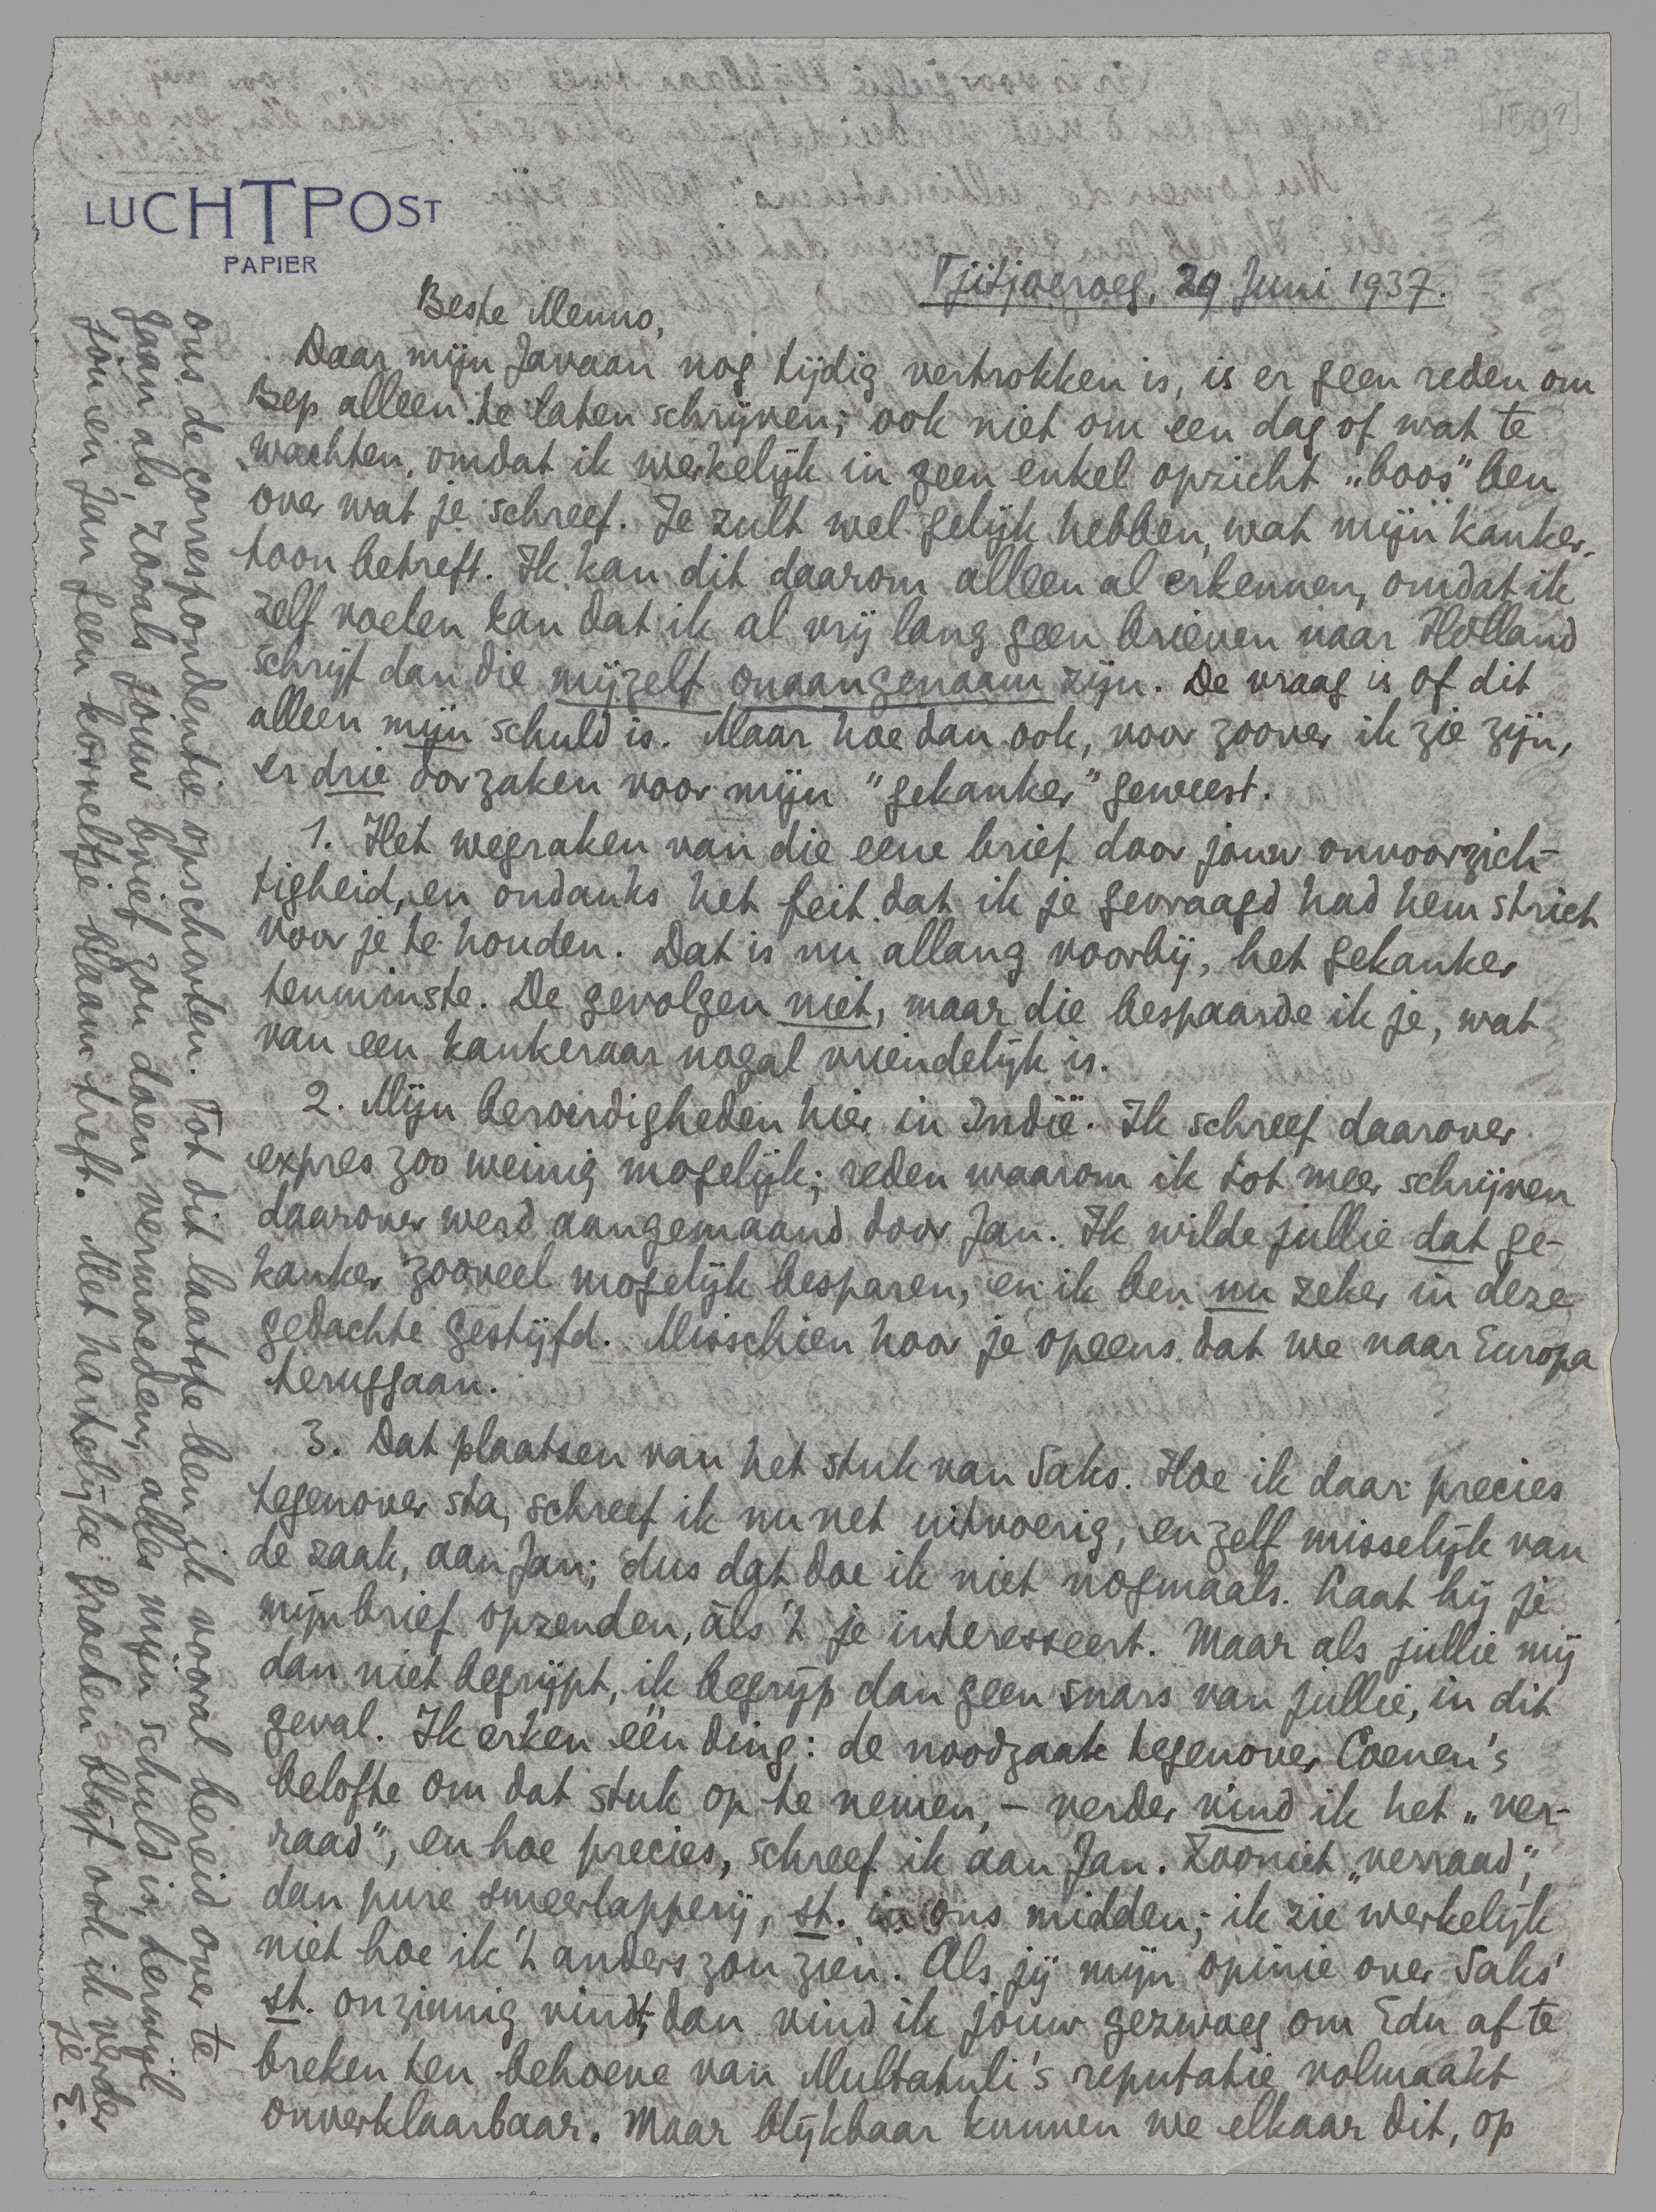 LUCHTPOST
PAPIER
Tjitjoeroeg, 29 Juni 1937.
Beste Menno,
Daar mijn Javaan nog tijdig vertrokken is, is er geen reden om
Bep alleen te laten schrijven; ook niet om een dag of wat te
wachten, omdat ik werkelijk in geen enkel opzicht „boos” ben
over wat je schreef. Je zult wel gelijk hebben, wat mijn kanker-
toon betreft. Ik kan dit daarom alleen al erkennen, omdat ik
zelf voelen kan dat ik al vrij lang geen brieven naar Holland
schrijf dan die mijzelf onaangenaam zijn. De vraag is of dit
alleen mijn schuld is. Maar hoe dan ook, voor zoover ik zie zijn,
er drie oorzaken voor mijn "gekanker" geweest.
1. Het wegraken van die eene brief door jouw onvoorzich-
tigheid, en ondanks het feit dat ik je gevraagd had hem strict
voor je te houden. Dat is nu allang voorbij, het gekanker
tenminste. De gevolgen niet, maar die bespaarde ik je, wat
van een kankeraar nogal vriendelijk is.
2. Mijn beroerdigheden hier in Indië. Ik schreef daarover
expres zoo weinig mogelijk; reden waarom ik tot meer schrijven
daarover werd aangemaand door Jan. Ik wilde jullie dat ge-
kanker zooveel mogelijk besparen, en ik ben nu zeker in deze
gedachte gestijfd. Misschien hoor je opeens dat we naar Europa
teruggaan.
3. Dat plaatsen van het stuk van Saks. Hoe ik daar precies
tegenover sta, schreef ik nu net uitvoerig, en zelf misselijk van
de zaak, aan Jan; dus dat doe ik niet nogmaals. Laat hij je
mijn brief opzenden, àls 't je interesseert. Maar als jullie mij
dan niet begrijpt, ik begrijp dan geen snars van jullie, in dit
geval. Ik erken één ding: de noodzaak tegenover Coenen's
belofte om dat stuk op te nemen, – verder vind ik het „ver-
raad”, en hoe precies, schreef ik aan Jan. Zooniet „verraad”,
dan pure smeerlapperij, st. in ons midden; ik zie werkelijk
niet hoe ik 't anders zou zien. Als jij mijn opinie over Saks'
st. onzinnig vindt, dan vind ik jouw gezwoeg om Edu af te
breken ten behoeve van Multatuli's reputatie volmaakt
onverklaarbaar. Maar blijkbaar kunnen we elkaar dit, op
ons de correspondentie opschorten. Tot dit laatste ben ik vooral bereid over te
gaan als, zooals jouw brief zou doen vermoeden, alles mijn schuld is, terwijl
jou en Jan geen korreltje blaam treft. Met hartelijke groeten blijf ook ik verder
je E.